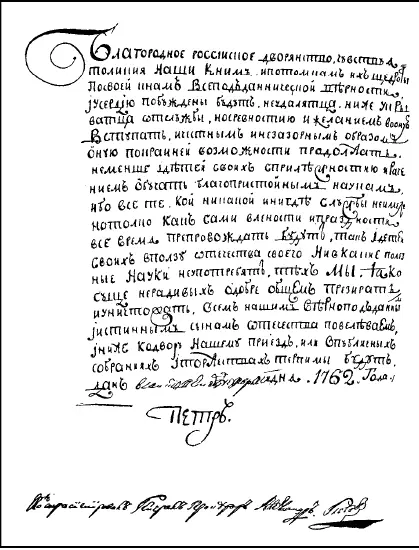 Благородное россиiское дворянство, чувствуя
толикия Наши к ним ипотомкам ихъ щедроты
Посвоей кнамъ Всеподданнической Вѣрности
iусердiю побуждены будутъ, неудалятца, ниже укры
ватца отслужбы, носревностию ижеланиемъ воную
Вступать, ичестнымъ инезазорнымъ образомъ
оную покрайней возможности продолжать,
неменше iдѣтей своихъ сприлѣжностию ираче
ниемъ обучать благопристойнымъ наукамъ,
ибо все те, Кои никакой инигдѣ службы неимѣли
нотолко Какъ сами влености ипраздности
все время препровождать будутъ, такъ iдѣтей
своихъ вползу отечества своего нивкакие полез
ные Науки неупотреблять, тѣхъ Мы, яко
суще нерадивыхъ одобре общемъ презирать
iуничтожать, Всемъ нашимъ Вѣрноподданнымъ
iистиннымъ сынамъ отечества повелѣваемъ,
iниже кодвору Нашему приездъ, или впубличныхъ
собранияхъ iторжествахъ терпимы будутъ.
данъ 1762. Года.
Петръ.